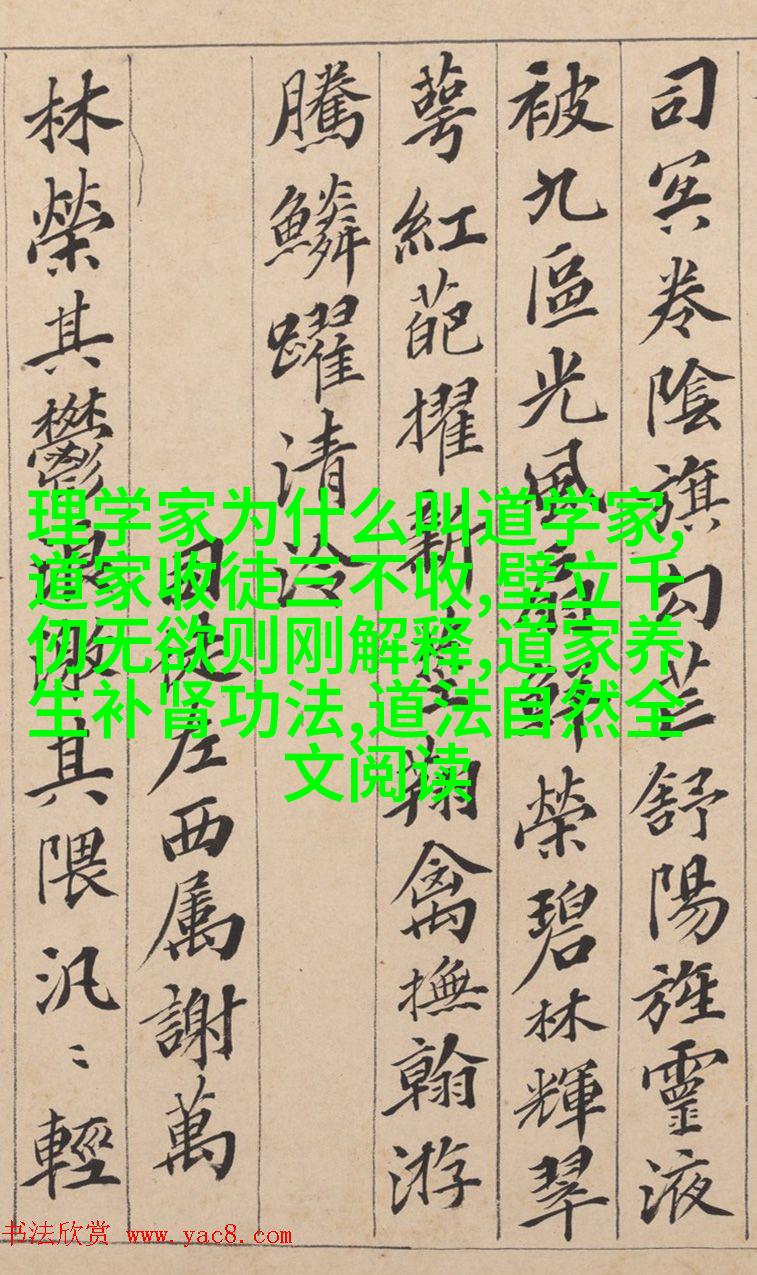 司冥卷陰旗勾芒舒陽旌靈液
被九區光風扇鮮榮碧林輝翠
萼紅葩擢新莖翔禽撫翰游
騰鱗躍清泠
司徒左西属謝萬
林榮其鬱浪激其隈汎〻輕
理学家为什么叫道学家,
道家收徒三不收,壁立千
仞无欲则刚解释,道家养
生补肾功法,道法自然全
文阅读
书法欣赏 www.yac8.com